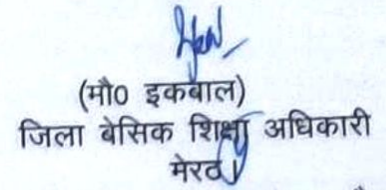 (मौ0 इकबाल)
जिला बेसिक शिक्षा अधिकारी
मेरठ।